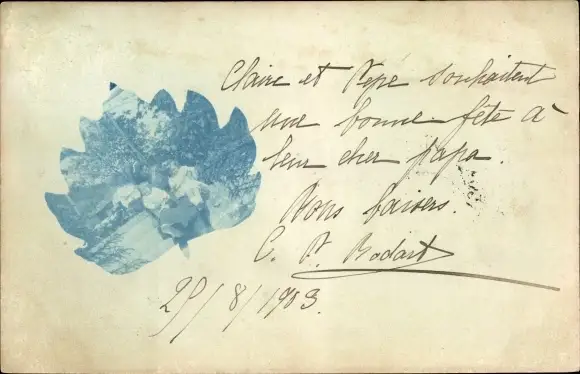 Claire et Pépé souhaitent
une bonne fête à
leur cher papa.
Bons baisers.
C. P. Bodart
25/8/1903.